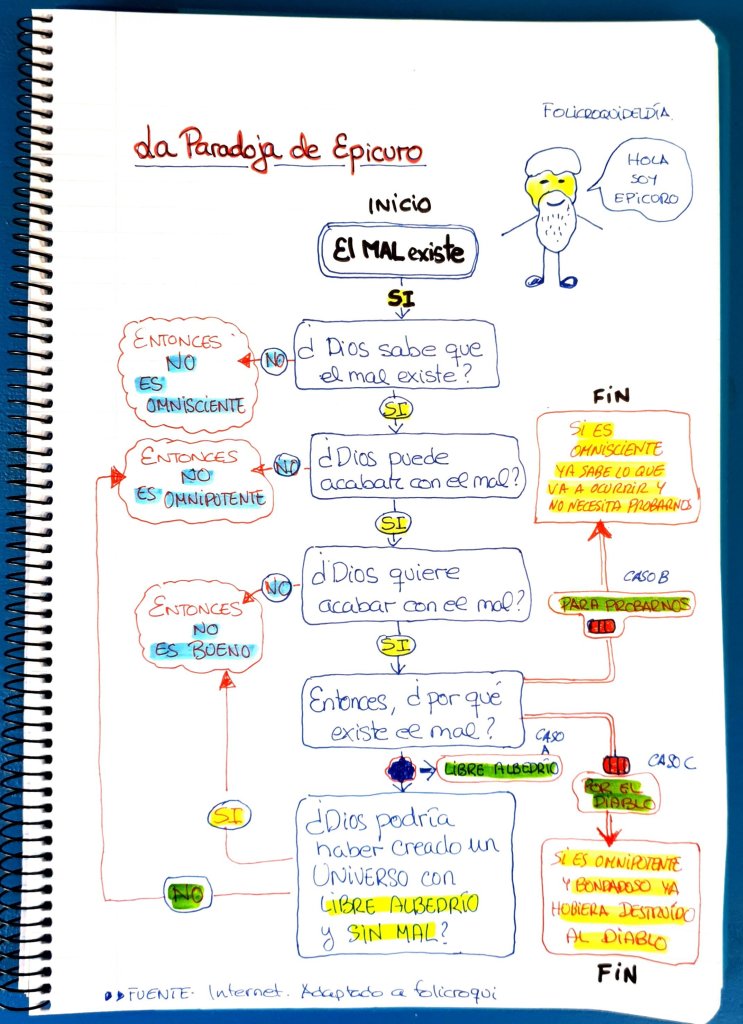 FOLICROQUIDELDÍA.
La Paradoja de Epicuro
HOLA
SOY
EPICORO
INICIO
El MAL existe
SI
¿Dios sabe que
el mal existe?
NO
ENTONCES
NO
ES
OMNISCIENTE
SI
¿Dios puede
acabar con el mal?
NO
ENTONCES
NO
ES OMNIPOTENTE
SI
¿Dios quiere
acabar con el mal?
NO
ENTONCES
NO
ES BUENO
SI
Entonces, ¿por qué
existe el mal?
FIN
SI ES
OMNISCIENTE
YA SABE LO QUE
VA A OCURRIR Y
NO NECESITA PROBARNOS
CASO B
PARA PROBARNOS
CASO
A
LIBRE ALBEDRÍO
CASO C
POR EL
DIABLO
SI
NO
¿Dios podría
haber creado un
UNIVERSO con
LIBRE ALBEDRÍO
y SIN MAL?
SI ES OMNIPOTENTE
Y BONDADOSO YA
HOBIERA DESTRUÍDO
AL DIABLO
FIN
FUENTE. Internet. Adaptado a folicroqui